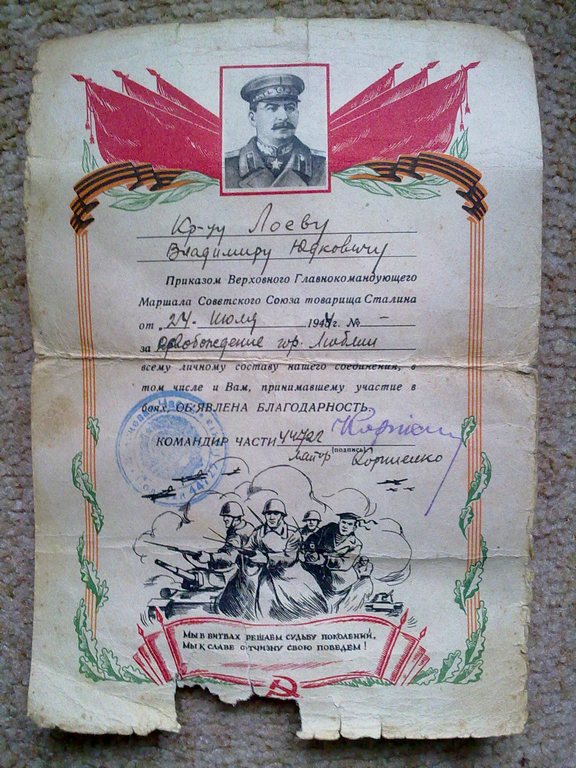 Кр-цу Лоеву
Владимиру Юдковичу
Приказом Верховного Главнокомандующего
Маршала Советского Союза товарища Сталина
от „24" июля 1944г. № —
за освобождение гор. Люблин
всему личному составу нашего соединения, в
том числе и Вам, принимавшему участие в
боях, ОБ'ЯВЛЕНА БЛАГОДАРНОСТЬ.
КОМАНДИР ЧАСТИ 44722
(подпись)
Майор
МЫ В БИТВАХ РЕШАЕМ СУДЬБУ ПОКОЛЕНИЙ,
МЫ К СЛАВЕ ОТЧИЗНУ СВОЮ ПОВЕДЕМ!